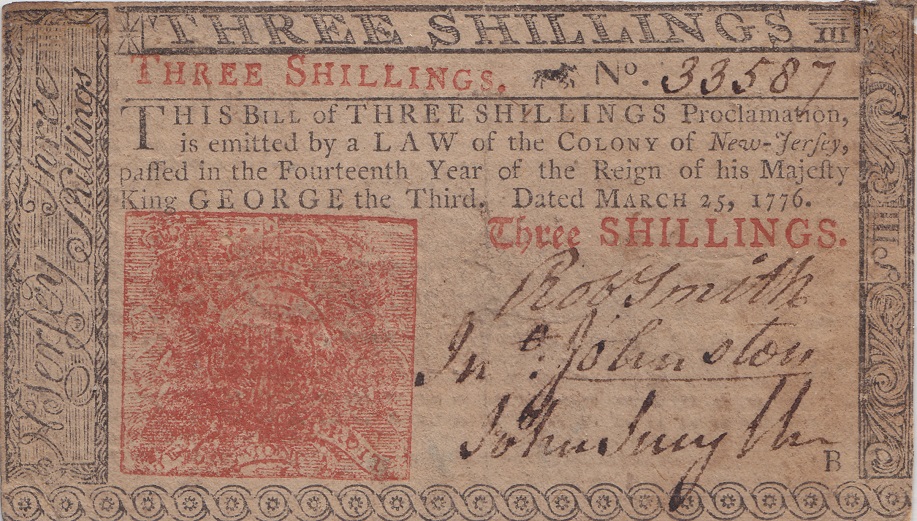 THREE SHILLINGS III
THREE SHILLINGS. No. 33587
THIS BILL of THREE SHILLINGS Proclamation,
is emitted by a LAW of the COLONY of New-Jersey,
paſſed in the Fourteenth Year of the Reign of his Majeſty
King GEORGE the Third. Dated MARCH 25, 1776.
Three SHILLINGS.
Robt Smith
Jno. Johnston
John Smyth
B
N. Jerſey Three
Shillings
III S